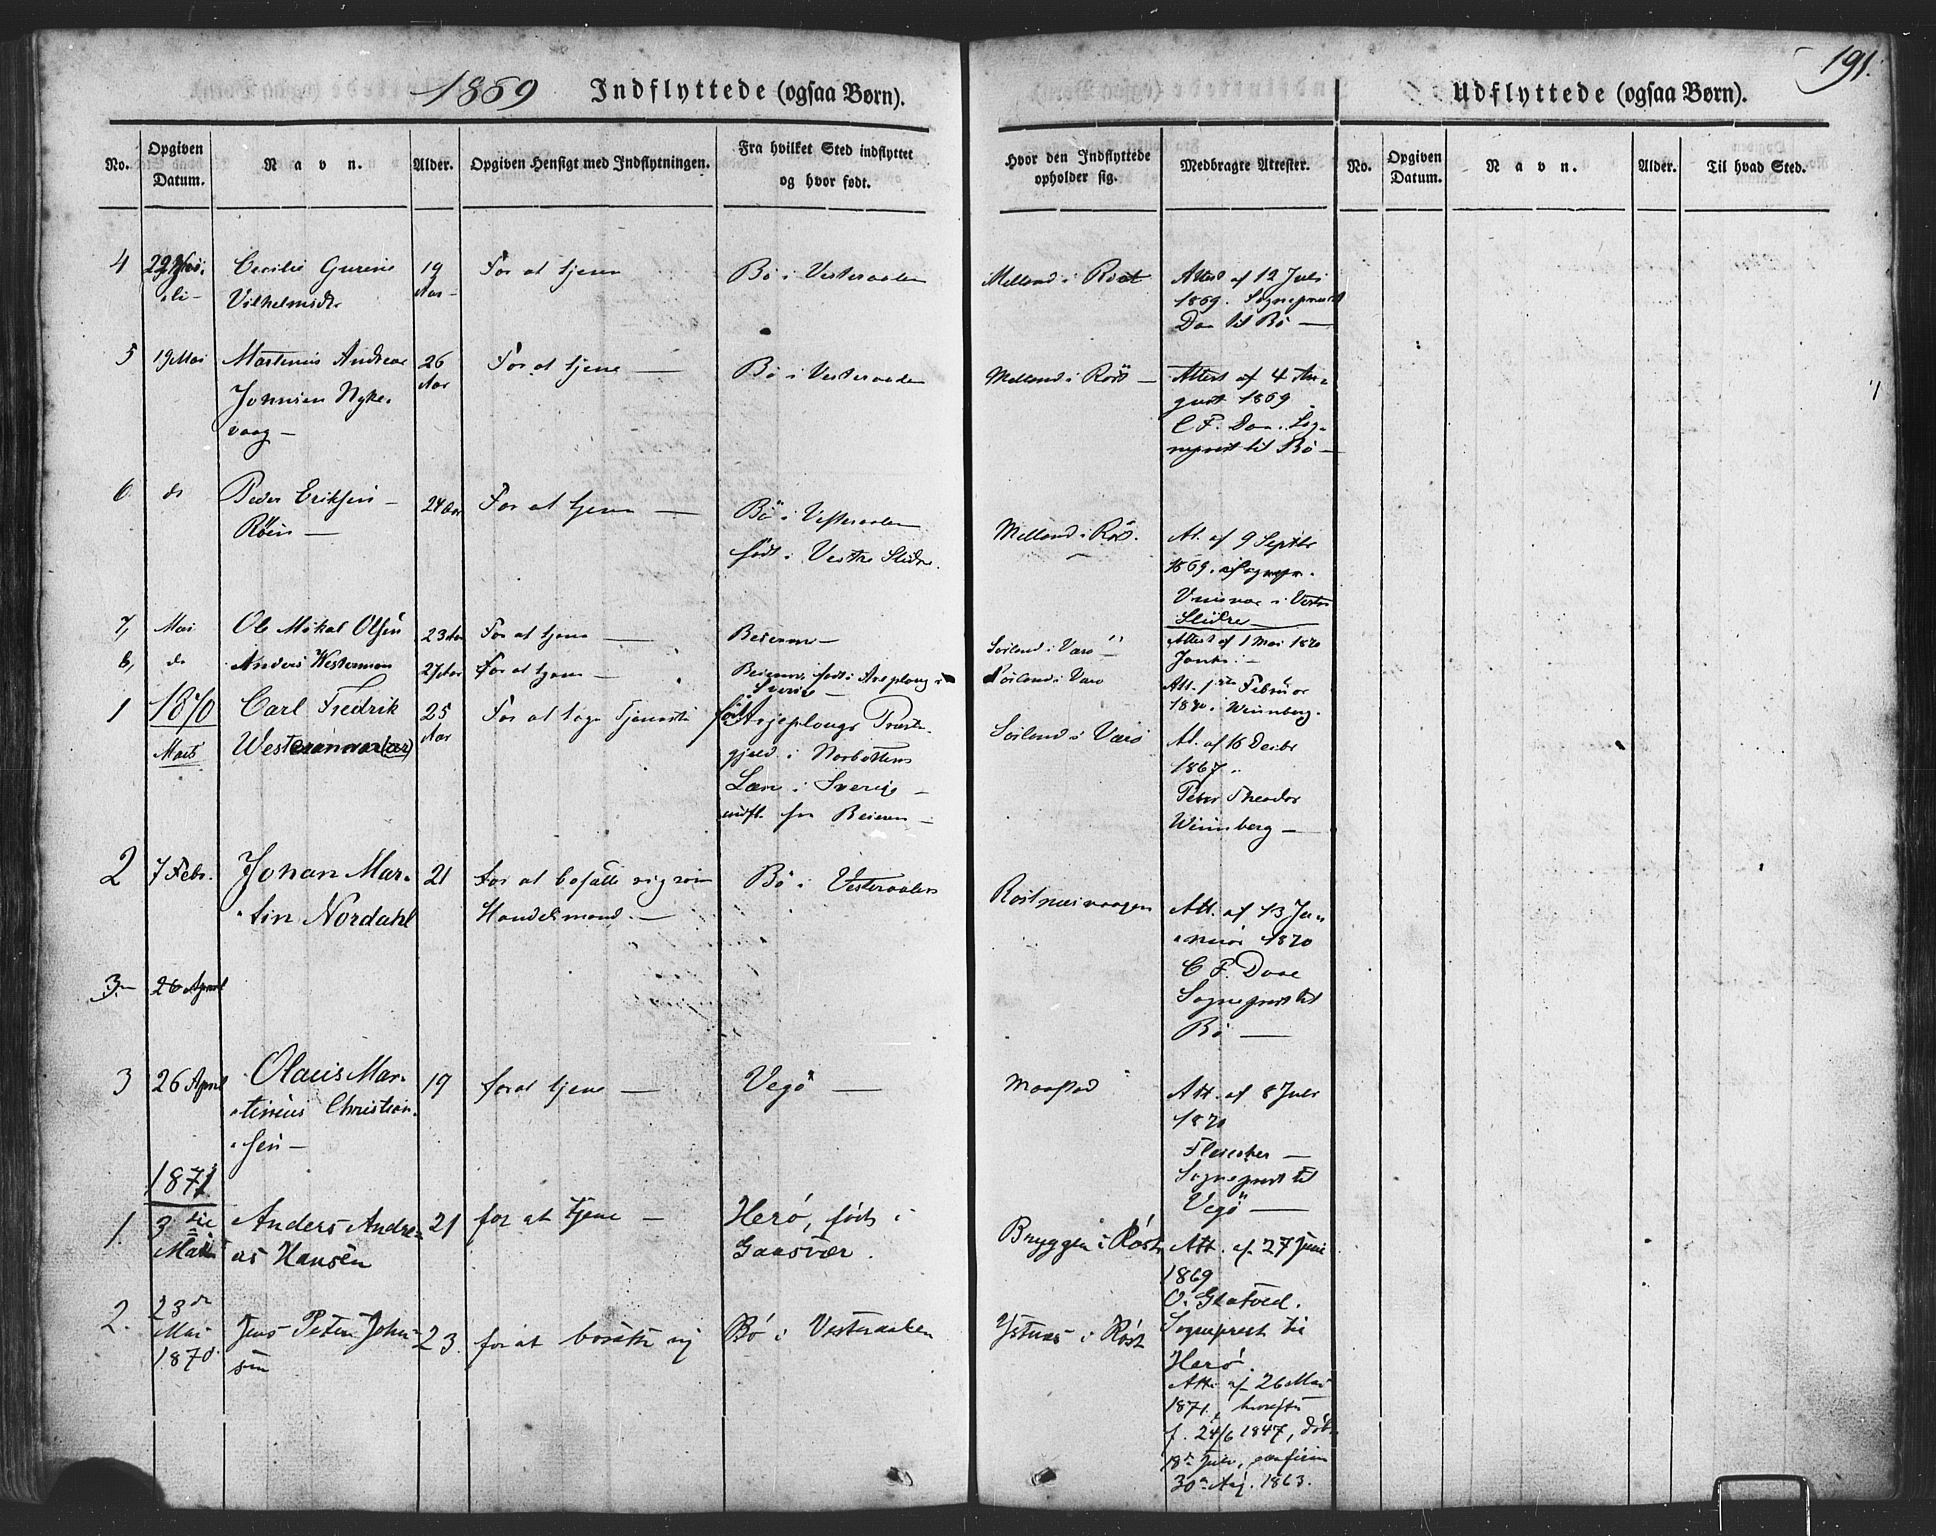 191.
1869 Indflyttede (ogsaa Børn).
Udflyttede (ogsaa Børn).
No. Opgiven Datum. Navn. Alder. Opgiven Hensigt med Indflytningen. Fra hvilket Sted indflyttet og hvor født. Hvor den Indflyttede opholder sig. Medbragte Attester. No. Opgiven Datum. Navn. Alder. Til hvad Sted.
4
Cecilie Gurine
Vilhelmsdtr
19
Aar
For at tjene
Bø i Vesteraalen
Melland i Røst
Attest af 12 Juli
1869. Sognepræst
Daa til Bø —
5 19 Mai
Martinus Andreas
Johnsen Nyke-
vaag —
26
Aar
For at tjene —
Bø i Vesteraalen
Melland i Røst —
Attest af 4 Au-
gust 1869
C F. Daa. Sog-
neprest til Bø —
6 do
Peder Eriksen —
Røen —
24 Aar
For at tjene —
Bø i Vesteraalen
født i Vestre Slidre.
Melland i Røst.
At. af 9 Septbr
1869. Sognepr.
i Vestre
Slidre —
7, Mai
Ole Mikal Olsen
23 Aar
For at tjene —
Beieren —
Søiland i Værø —
Attest af 1 Mai 1870
8, do
Anders Westerman
27 Aar
For at tjene —
Beieren, født i Areploug i
Sverie —
Søiland i Værø
Att. 1ste Februar
1870. Winnberg.
1 1870
Marts
Carl Fredrik
25
Aar
For at tage Tjeneste
født Arjeplougs Præste-
gjeld i Norbottens
Læn i Sverige —
indfl. fra Beieren —
Søiland i Værø
At. af 16 Decbr
1867.
Peter Theodor
Winnberg —
2 7 Febr.
Johan Mar-
tin Nordahl
21
For at bosætte sig som
Handelsmand. —
Bø i Vesteraalen
Røstnæsvaagen
Att. af 13 Ja-
nuar 1870
C F. Daae
Sogneprest til
Bø —
3 — 26 April
3 26 April
Olaus Mar-
tinius Christian-
sen —
19
for at tjene —
Vegø —
Maastad
Att. af 8 Juli
1870
Fleischer —
Sogneprest til
Vegø —
1871
1. 3die
Mai
Anders Andre-
as Hansen
21
for at tjene —
Herø, født i
Gaasvær.
Bryggen i Røst
Att. af 27 Juni
1869
O. Glatved.
Sogneprest til
Herø.
2. 23de
Mai
1870
Jens Peter John-
sen
23.
for at bosætte sig
Bø i Vesteraalen
Ystnæs i Røst
Att. af 26 Mai
1871,
f. 24/6 1847, døbt
18de Juli, confirm
30te Aug. 1863.